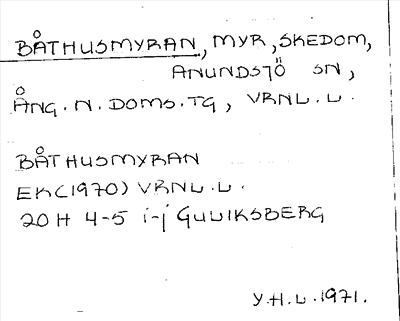 BÅTHUSMYRAN, MYR, SKEDOM,
ANUNDSJÖ SN,
ÅNG. N. DOMS. TG, VRNL. L.
BÅTHUSMYRAN
EK (1970) VRNL. L.
20 H 4-5 i-j GULIKSBERG
Y.H.L. 1971.